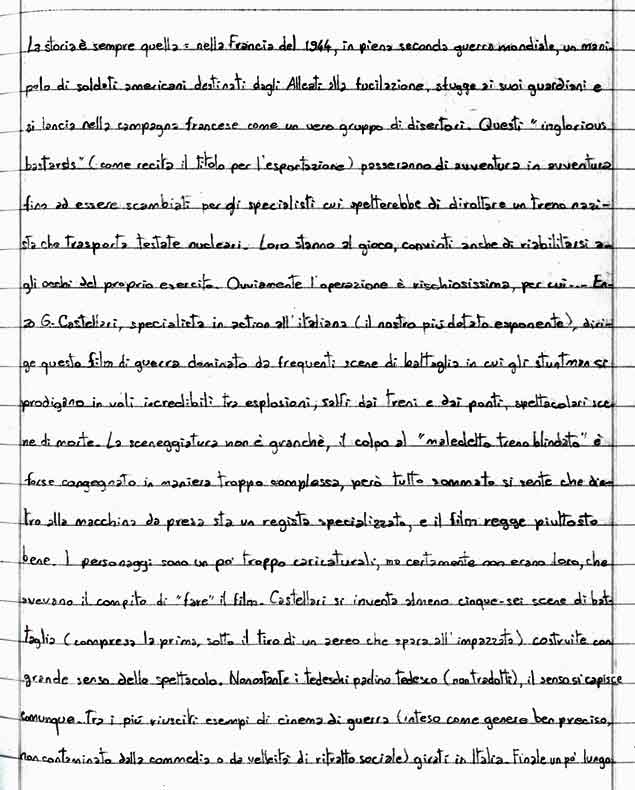 La storia è sempre quella: nella Francia del 1944, in piena seconda guerra mondiale, un mani-
polo di soldati americani destinati dagli Alleati alla fucilazione, sfugge ai suoi guardiani e
si lancia nella campagna francese come un vero gruppo di disertori. Questi "inglorious
bastards" (come recita il titolo per l'esportazione) passeranno di avventura in avventura
fino ad essere scambiati per gli specialisti cui spetterebbe di dirottare un treno nazi-
sta che trasporta testate nucleari. Loro stanno al gioco, convinti anche di riabilitarsi a-
gli occhi del proprio esercito. Ovviamente l'operazione è rischiosissima, per cui... En-
zo G. Castellari, specialista in action all'italiana (il nostro più dotato esponente), diri-
ge questo film di guerra dominato da frequenti scene di battaglia in cui gli stuntman si
prodigano in voli incredibili tra esplosioni, salti dai treni e dai ponti, spettacolari sce-
ne di morte. La sceneggiatura non è granchè, il colpo al "maledetto treno blindato" è
forse congegnato in maniera troppo complessa, però tutto sommato si sente che die-
tro alla macchina da presa sta un regista specializzato, e il film regge piuttosto
bene. I personaggi sono un po' troppo caricaturali, ma certamente non erano loro, che
avevano il compito di "fare" il film. Castellari si inventa almeno cinque-sei scene di bat-
taglia (compresa la prima, sotto il tiro di un aereo che spara all'impazzata) costruite con
grande senso dello spettacolo. Nonostante i tedeschi parlino tedesco (non tradotti), il senso si capisce
comunque. Tra i più riusciti esempi di cinema di guerra (inteso come genere ben preciso,
non contaminato dalla commedia o da velleità di ritratto sociale) girati in Italia. Finale un po' lungo